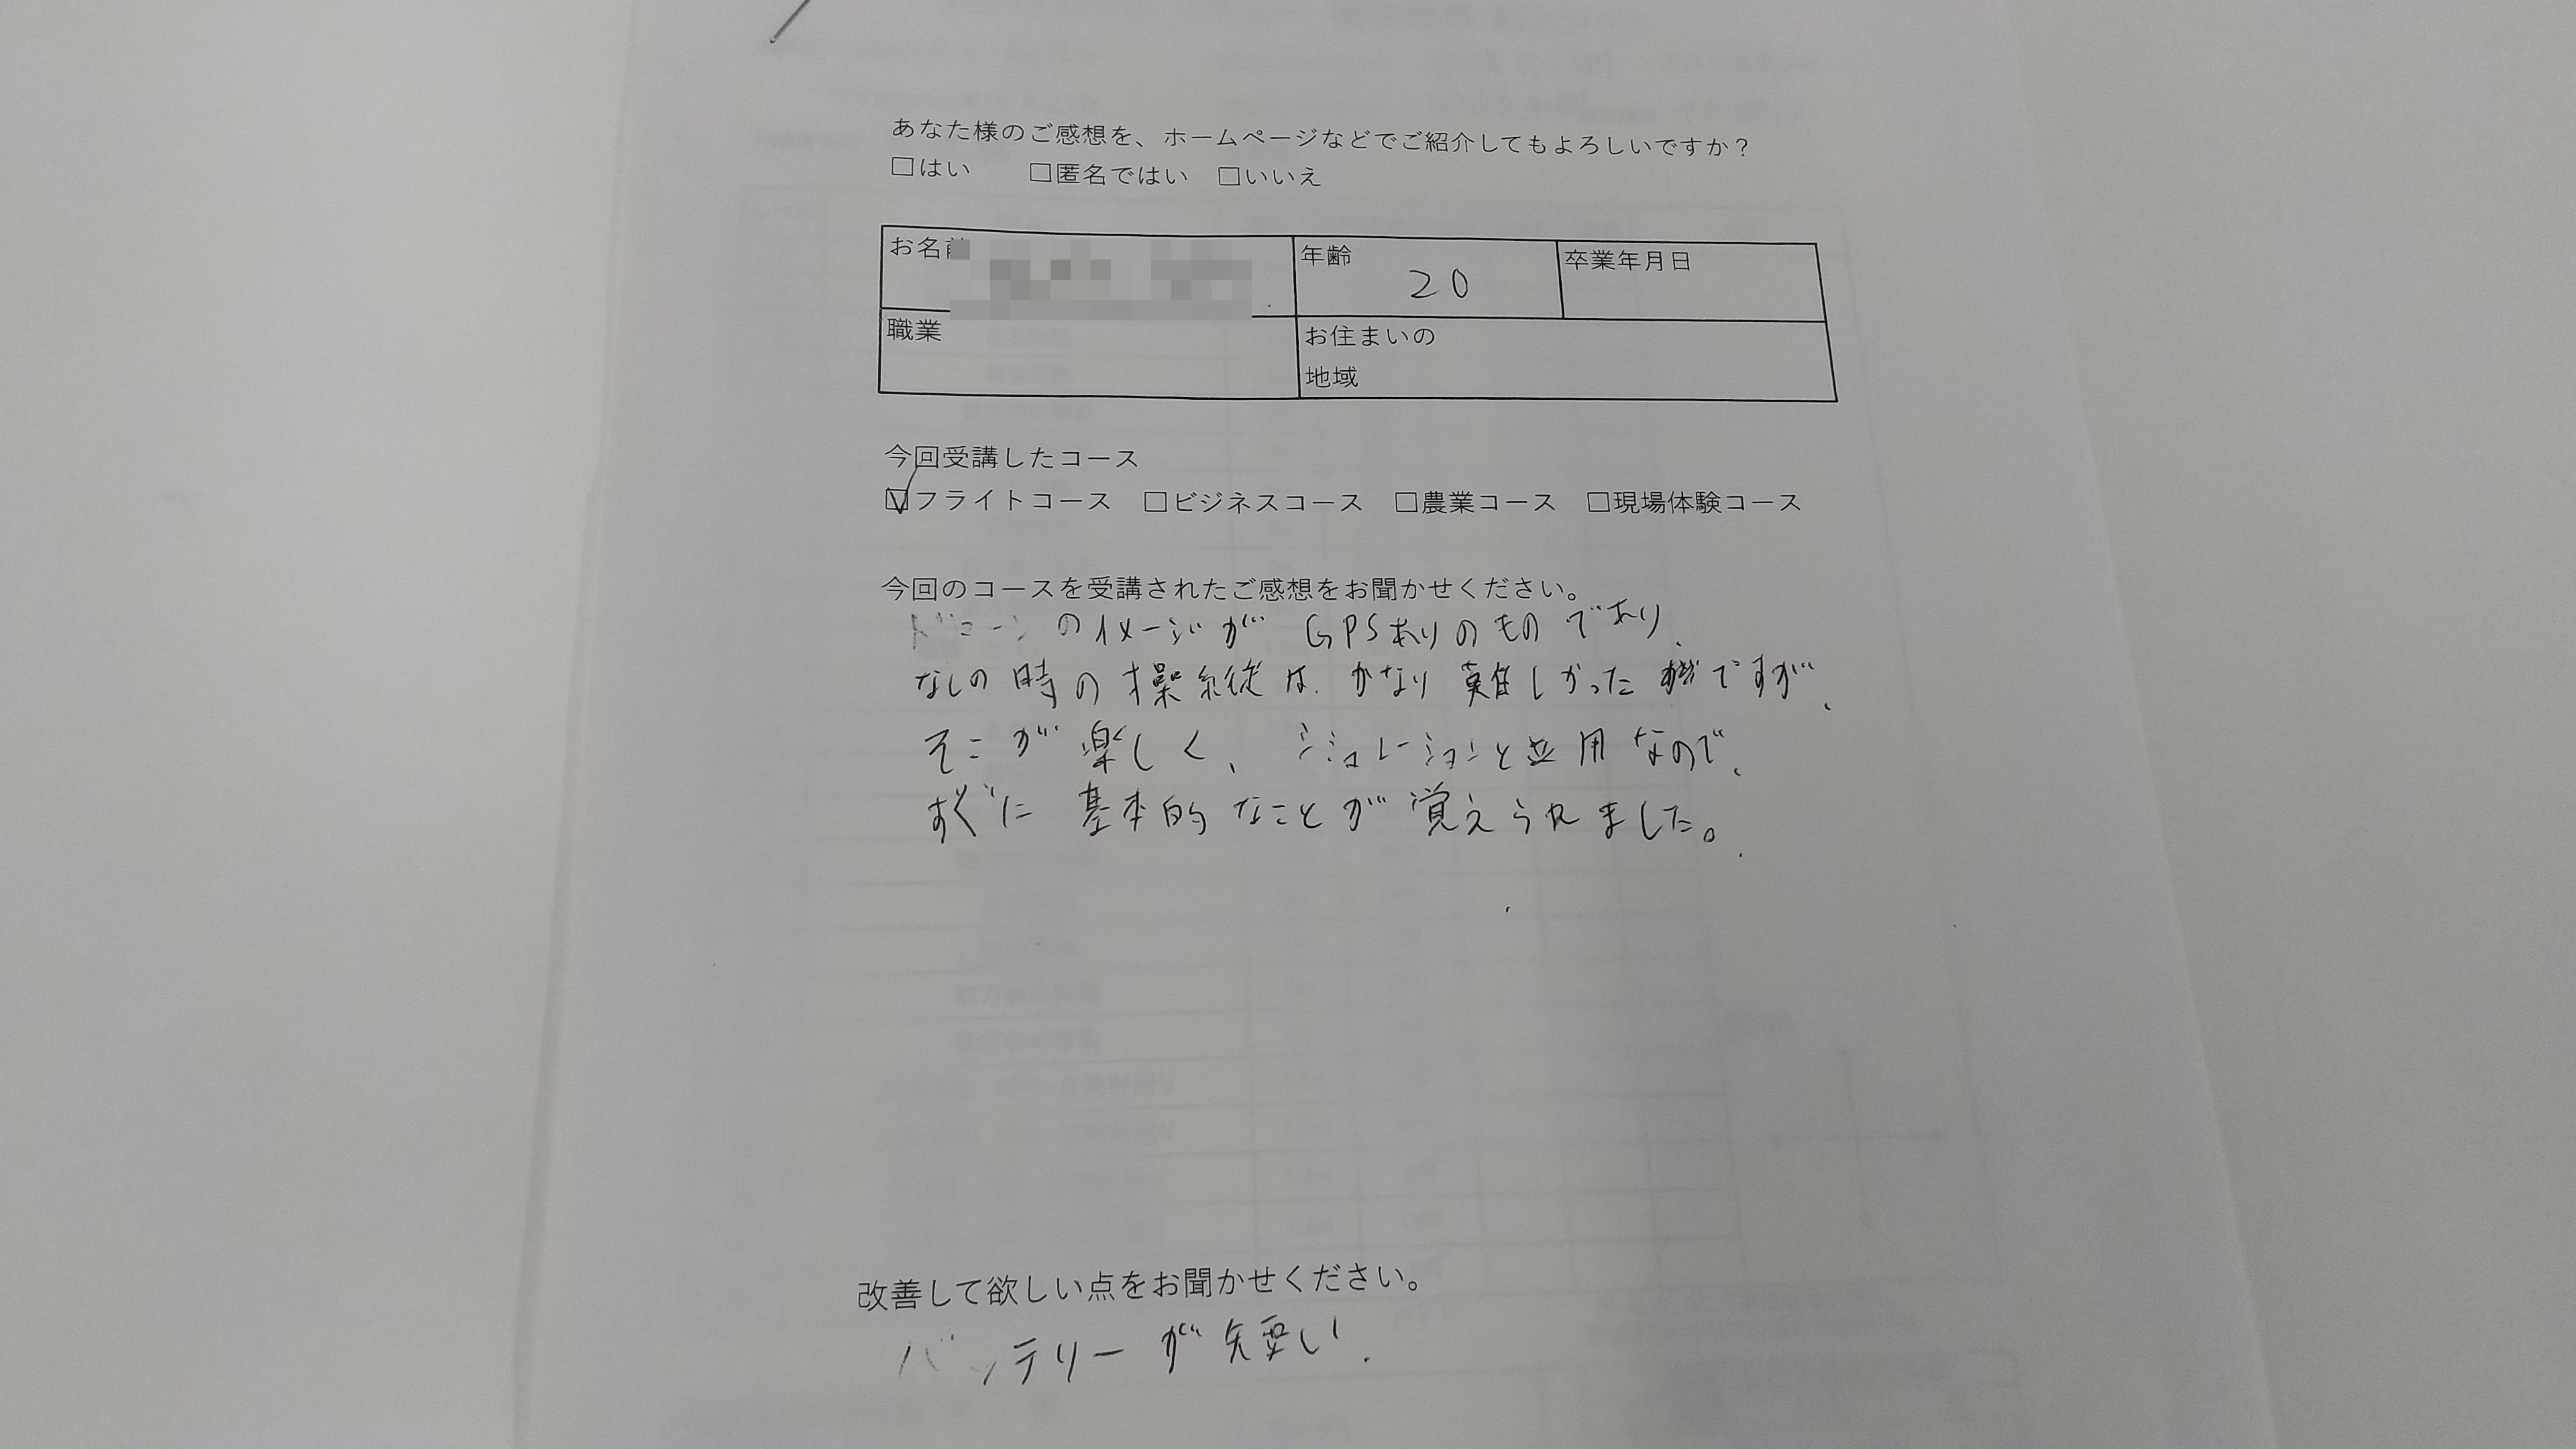 あなた様のご感想を、ホームページなどでご紹介してもよろしいですか？
□はい □匿名ではい □いいえ
お名前 年齢 20 卒業年月日
職業 お住まいの
地域
今回受講したコース
☑フライトコース □ビジネスコース □農業コース □現場体験コース
今回のコースを受講されたご感想をお聞かせください。
ドローンのイメージが GPSありのものであり、
なしの時の操縦は、かなり難しかったですが、
そこが楽しく、シュミレーションと並用なので、
すぐに基本的なことが覚えられました。
改善して欲しい点をお聞かせください。
バッテリーが短い.